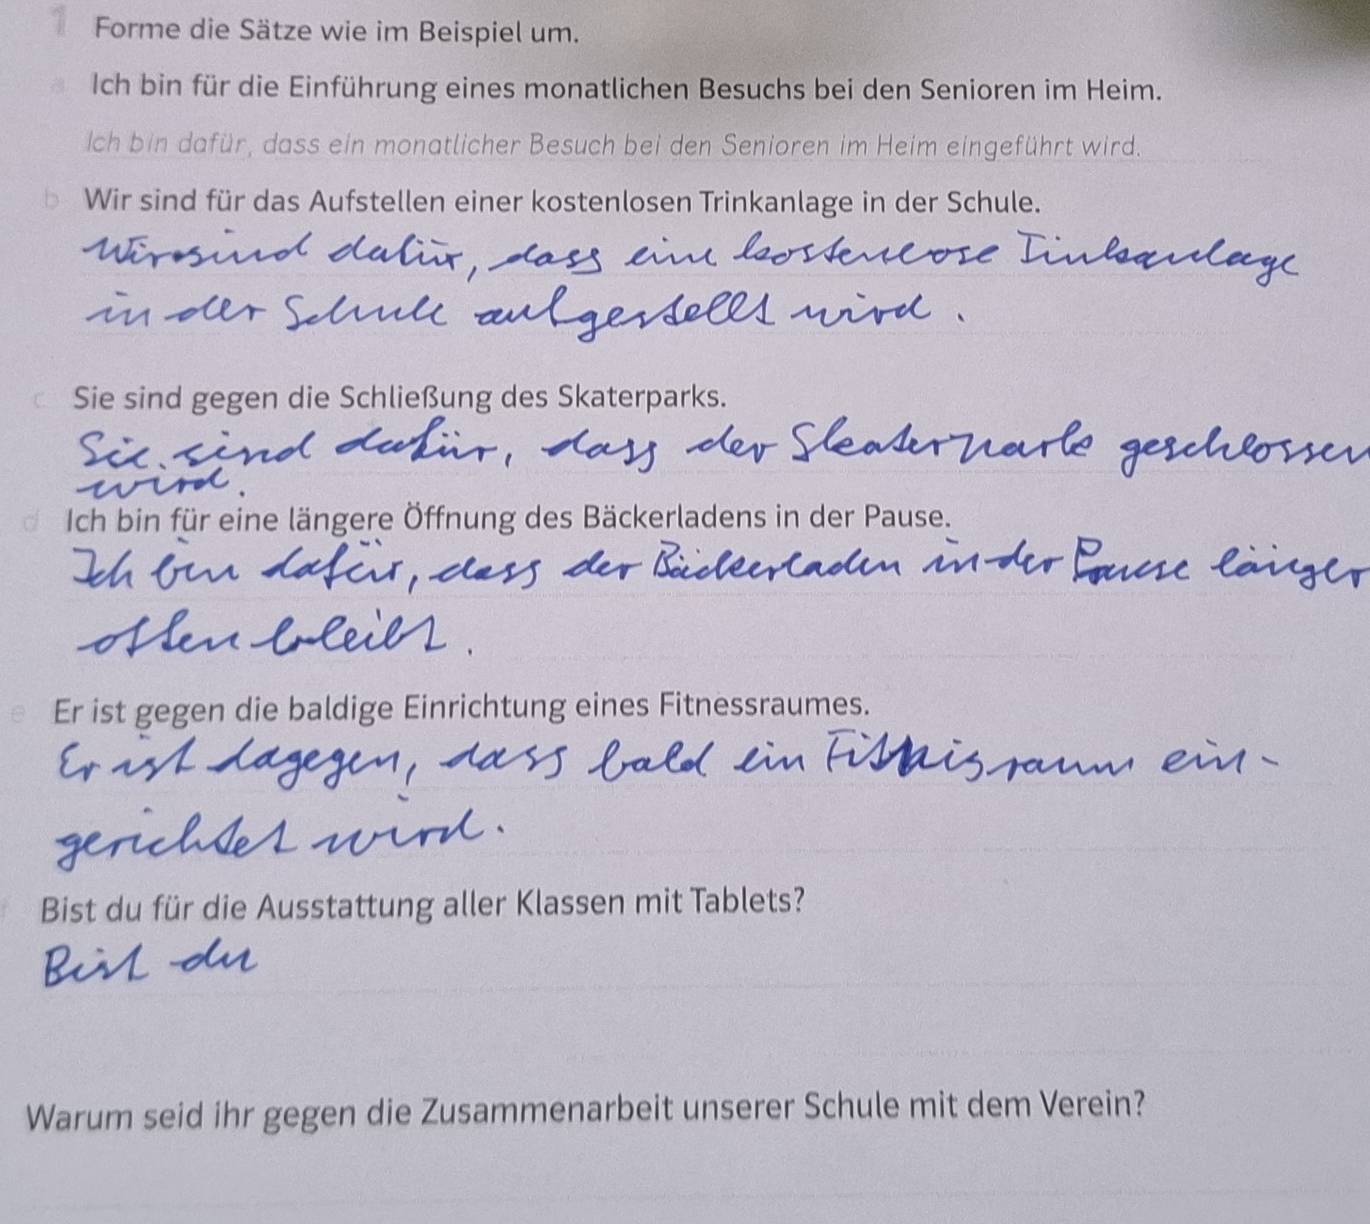 1 Forme die Sätze wie im Beispiel um.
a Ich bin für die Einführung eines monatlichen Besuchs bei den Senioren im Heim.
Ich bin dafür, dass ein monatlicher Besuch bei den Senioren im Heim eingeführt wird.
b Wir sind für das Aufstellen einer kostenlosen Trinkanlage in der Schule.
Wir sind dafür, dass eine kostenlose Tinkanlage
in der Schule aufgestellt wird.
c Sie sind gegen die Schließung des Skaterparks.
Sie sind dafür, dass der Skaterpark geschlossen
wird.
d Ich bin für eine längere Öffnung des Bäckerladens in der Pause.
Ich bin dafür, dass der Bäckerladen in der Pause länger
offen bleibt.
e Er ist gegen die baldige Einrichtung eines Fitnessraumes.
Er ist dagegen, dass bald ein Fitnisraum ein-
gerichtet wird.
f Bist du für die Ausstattung aller Klassen mit Tablets?
Bist du
Warum seid ihr gegen die Zusammenarbeit unserer Schule mit dem Verein?